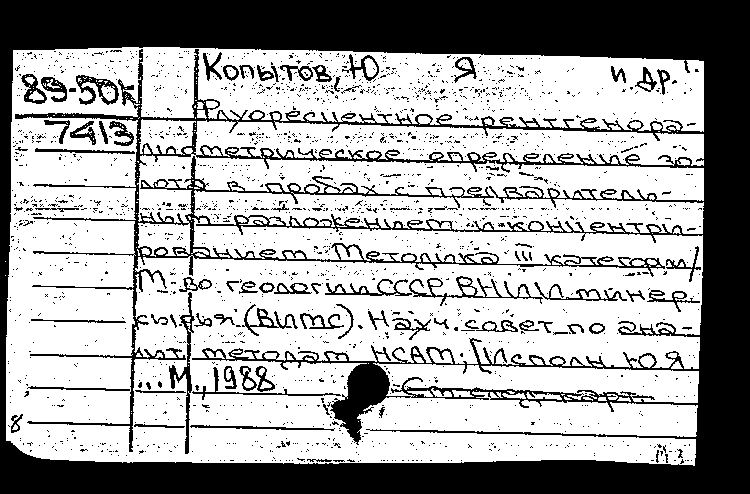 Копытов, Ю Я и др.
89-50к
7413
Флуоресцентное рентгенора-
диометрическое определение зо-
лота в пробах с предваритель-
ным разложением и концентри-
рованием. Методика III категории/
М-во геологии СССР, ВНИИ минер
сырья (ВИМС). Науч. совет по ана-
лит. методам НСАМ; [Исполн. Ю Я
...М., 1988
См. след. карт.
8
М 3